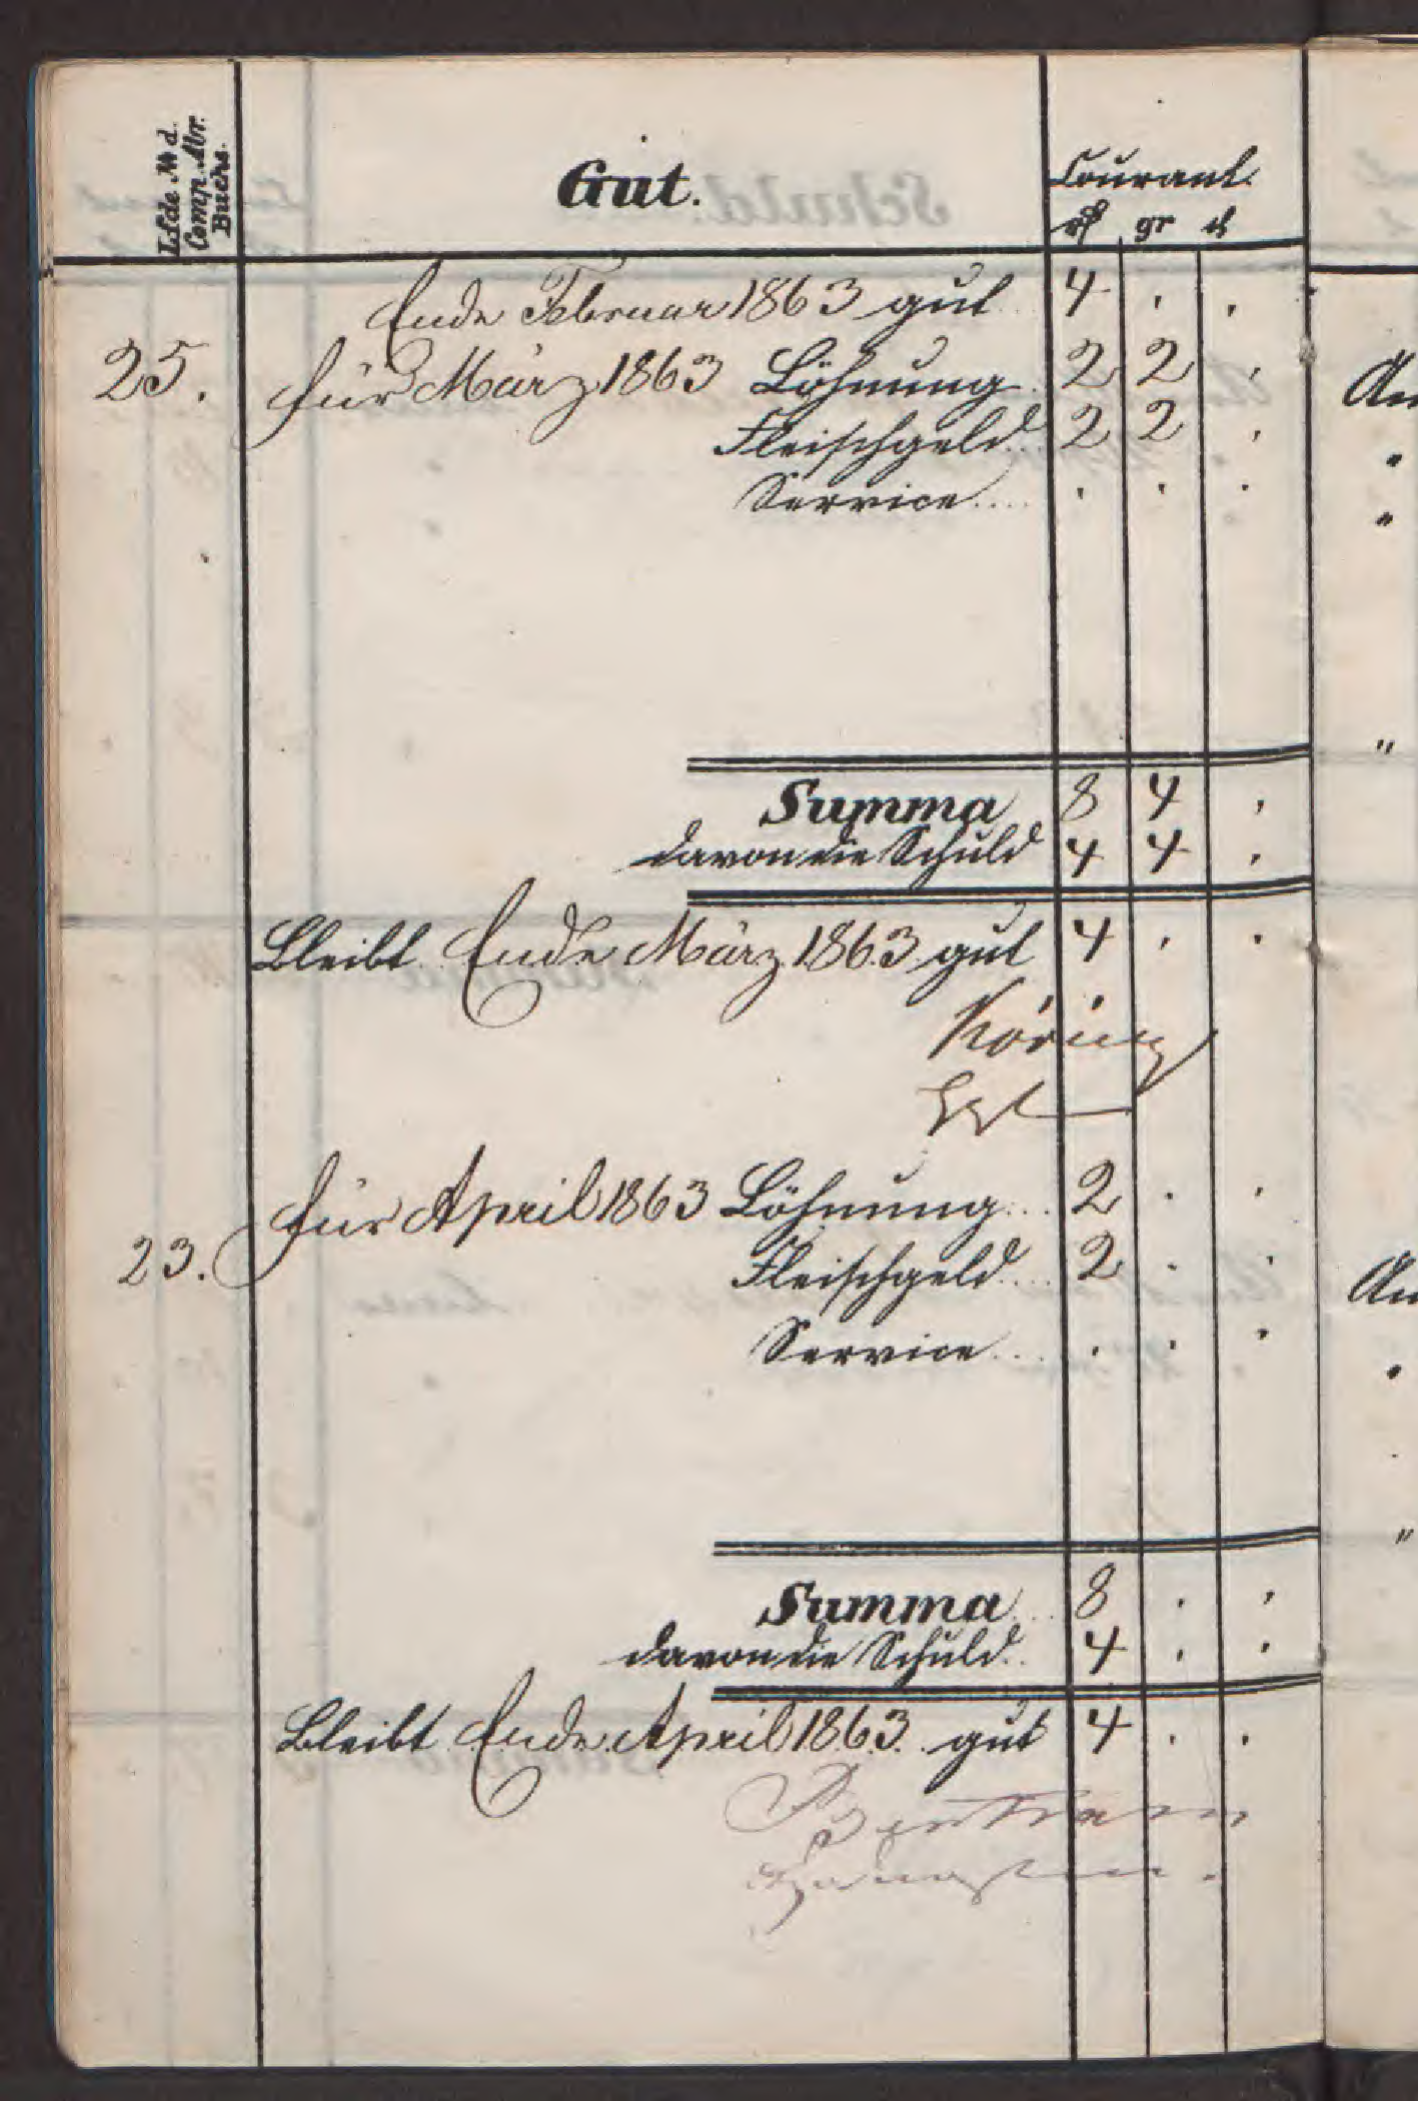 Lfde № d.
Comp. Abr.
Buchs.
Gut.
Courant.
rℓ gr ₰
Ende Februar 1863 gut 4 . .
25. für März 1863 Löhnung 2 2 .
Fleischgeld.. 2 2 .
Service.... . . .
Summa 8 4 .
davon die Schuld 4 4 .
Bleibt Ende März 1863 gut 4 . .
für April 1863 Löhnung... 2 . .
23. Fleischgeld... 2 . .
Service... . . .
Summa.. 8 . .
davon die Schuld.. 4 . .
Bleibt Ende April 1863. gut 4 . .
An
"
"
"
An
"
"